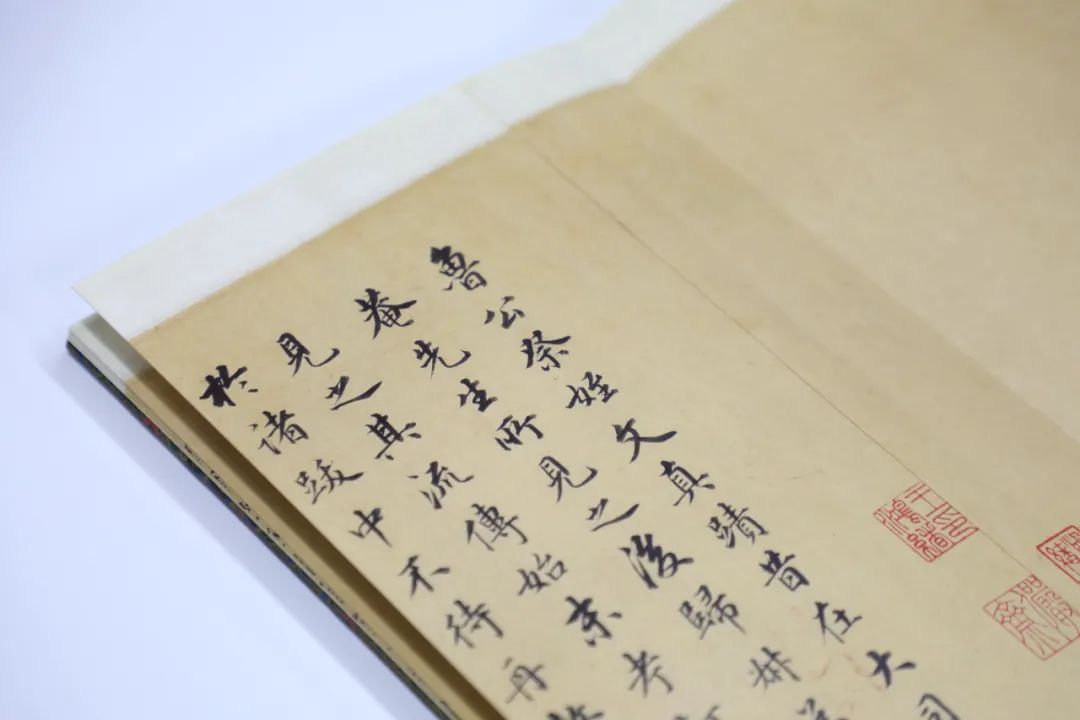 魯公祭姪文真蹟昔在大司
菴先生所見之後歸
見之其流傳始末考
於諸跋中不待再